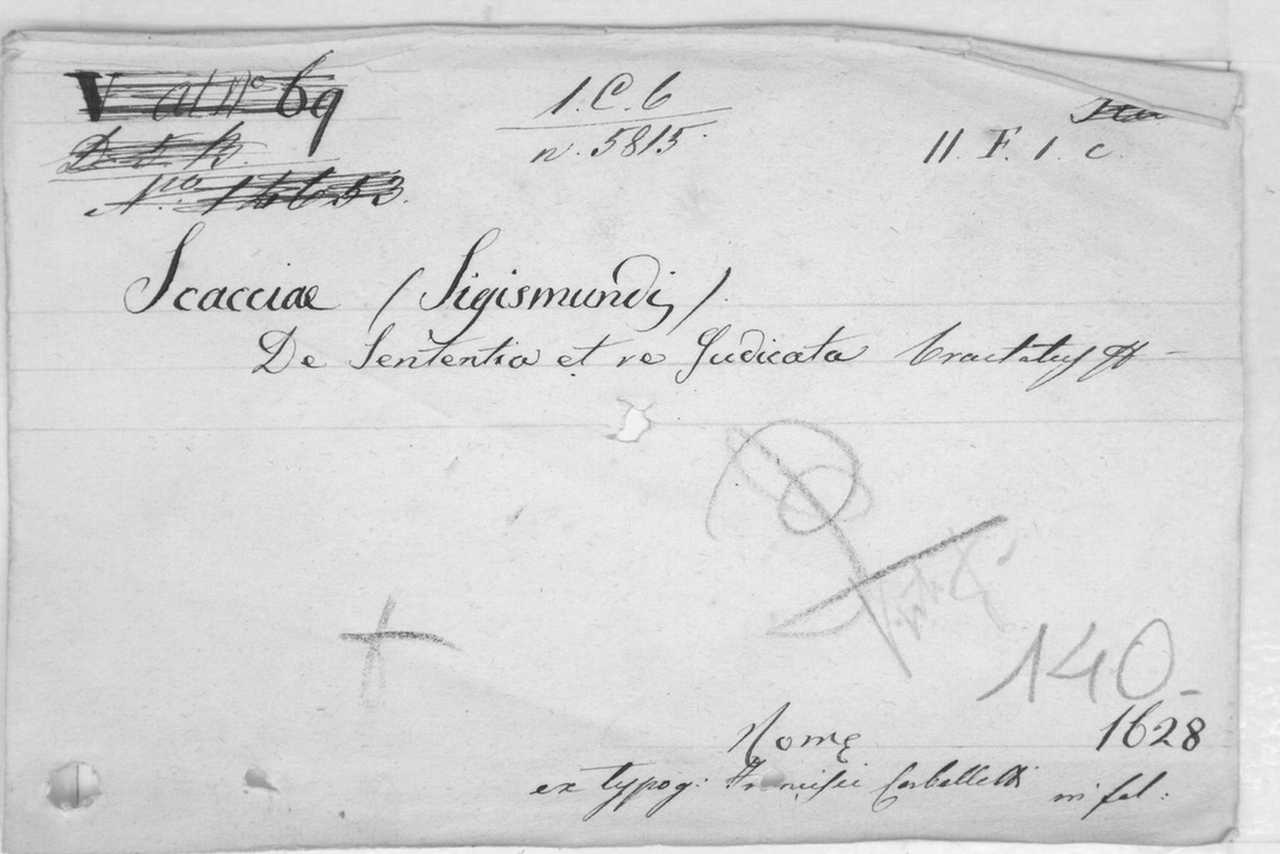 V at Nº 69
1. C. 6
n. 5815.
11. F. 1. c.
Nro 14653.
Scacciae (Sigismundi)
De Sententia et re Judicata tractatus
140-
Rome 1628
ex typog: Francisci Corbelletti in fol: